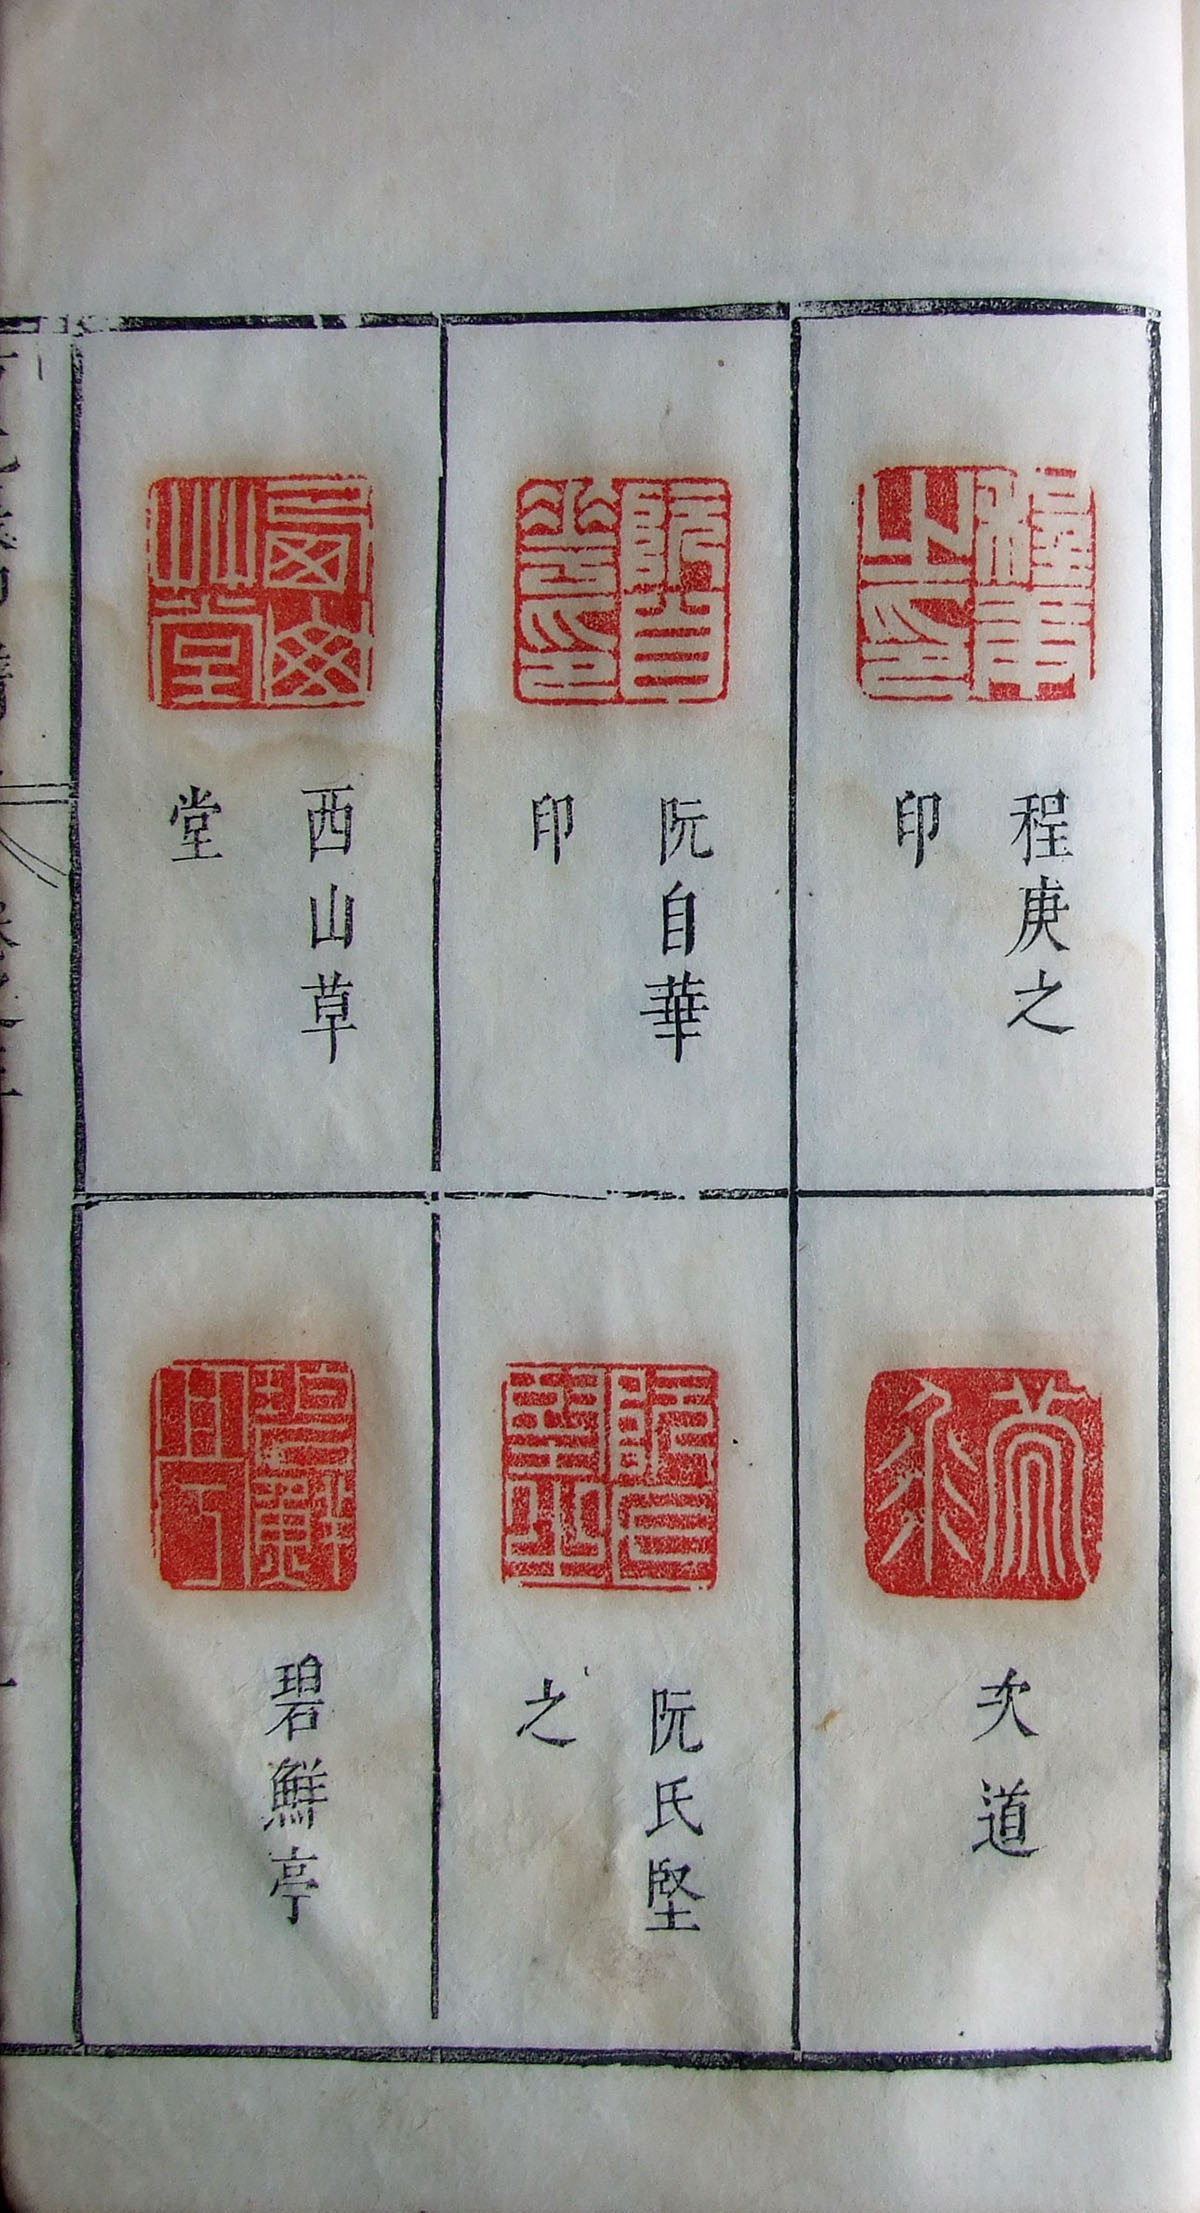 程庚之
印
次道
阮自華
印
阮氏堅
之
西山草
堂
碧鮮亭